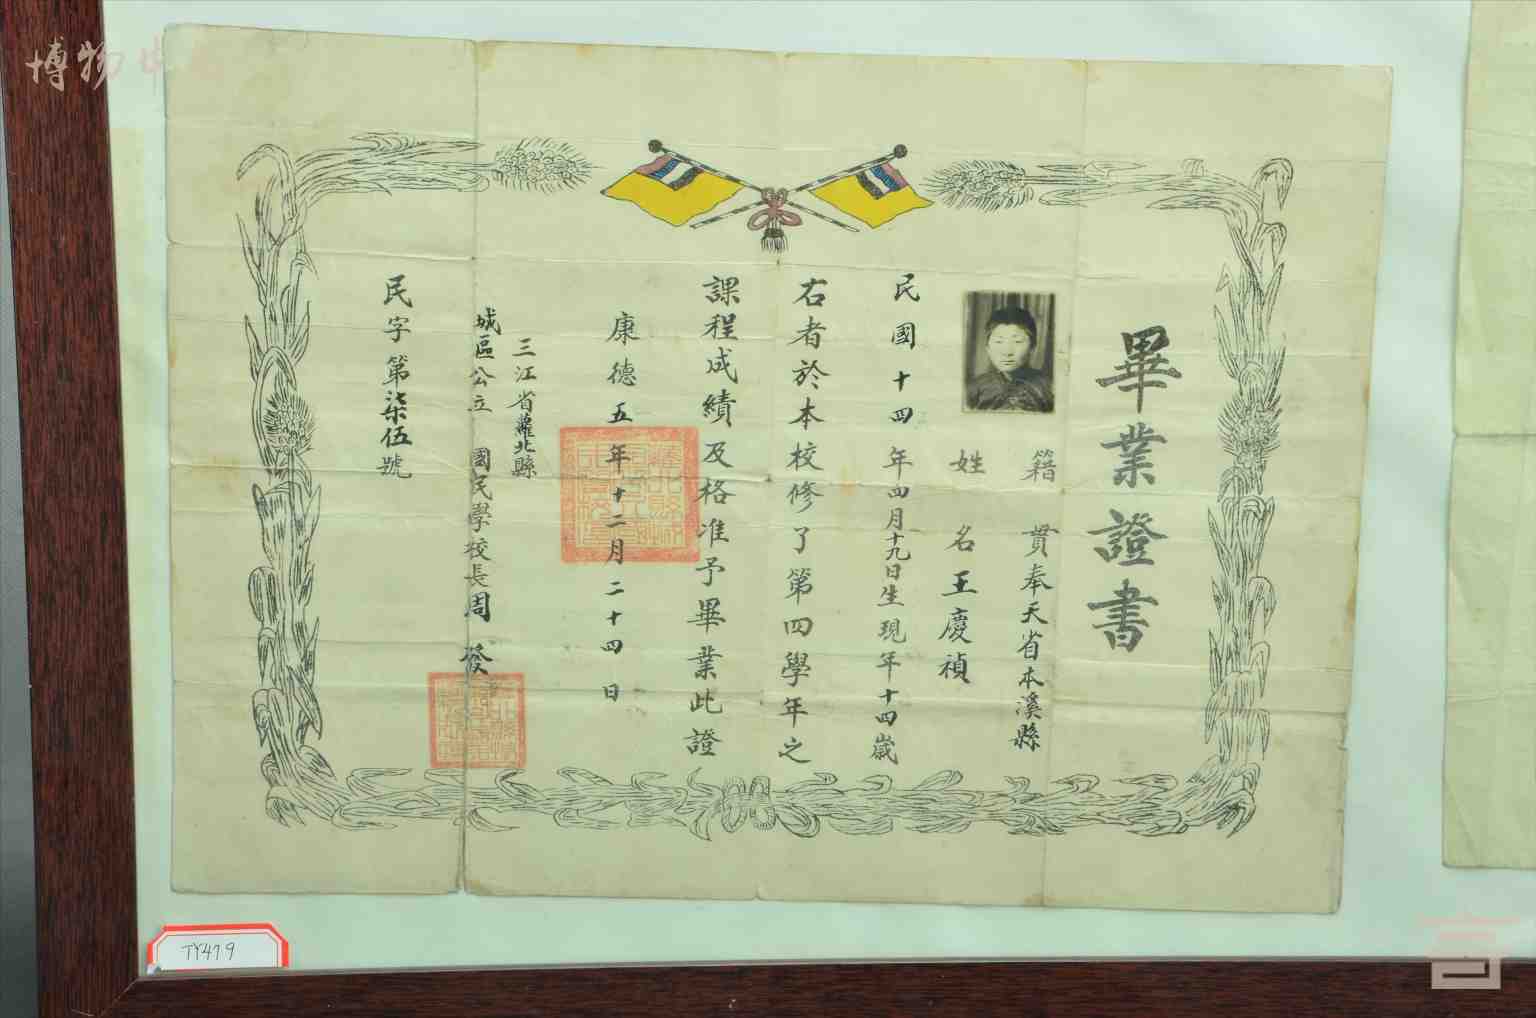 畢業證書
籍貫奉天省本溪縣
姓名王慶禎
民國十四年四月十九日生現年十四歲
右者於本校修了第四學年之
課程成績及格准予畢業此證
康德五年十二月二十四日
三江省蘿北縣
城區公立國民學校長周發
民字第柒伍號
TY479
博物